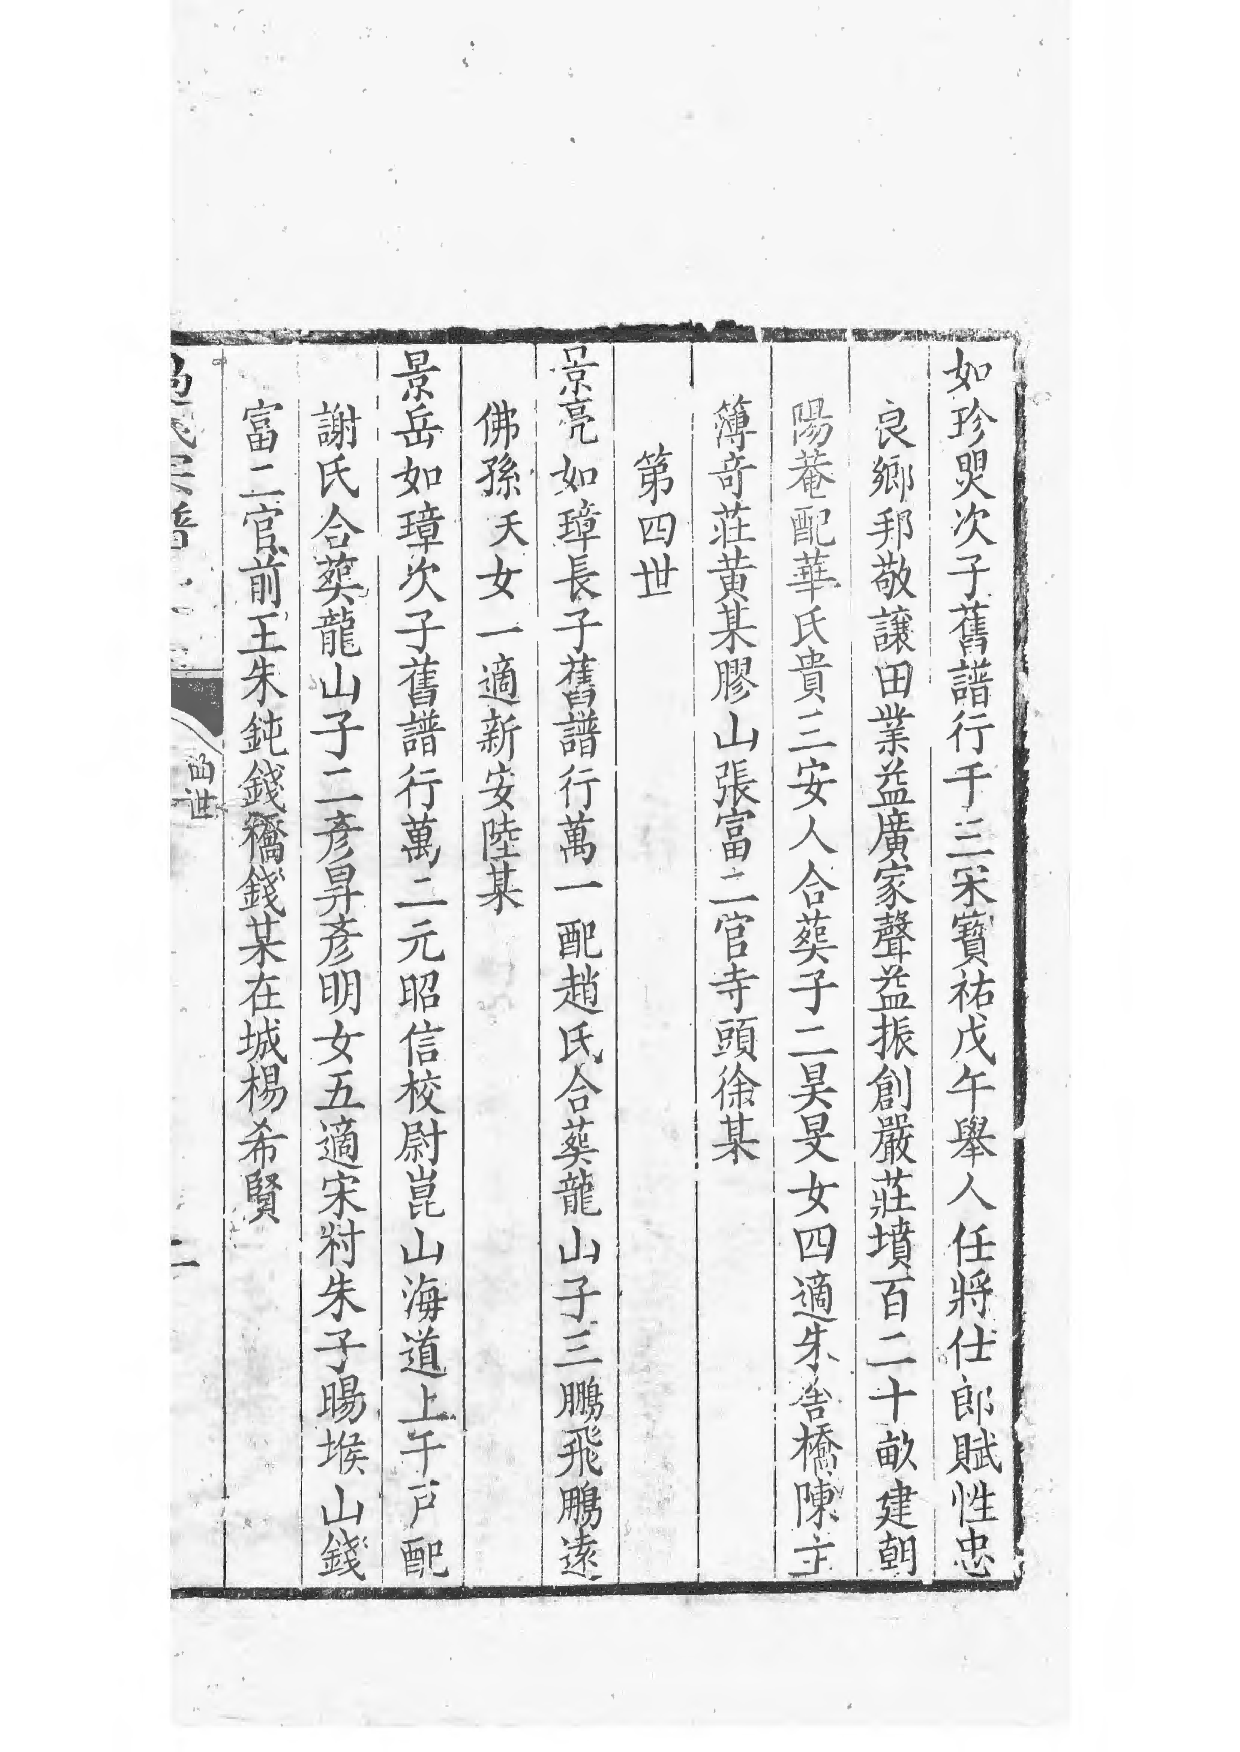 如珍煛次子舊譜行千三宋寳祐戊午舉人任將仕郎賦性忠
良鄉邦敬讓田業益廣家聲益振創嚴莊墳百二十畝建朝
陽菴配華氏貴三安人合葬子二昊旻女四適朱舍橋陳主
簿奇莊黄某膠山張富二官寺頭徐某
第四世
景亮如璋長子舊譜行萬一配趙氏合葬龍山子三鵬飛鵬遠
佛孫夭女一適新安陸某
景岳如璋次子舊譜行萬二元昭信校尉崑山海道上千戸配
謝氏合葬龍山子二彥昇彥明女五適宋村朱子暘堠山錢
富二官前王朱鈍錢橋錢某在城楊希賢
過氏宗譜
四世
二